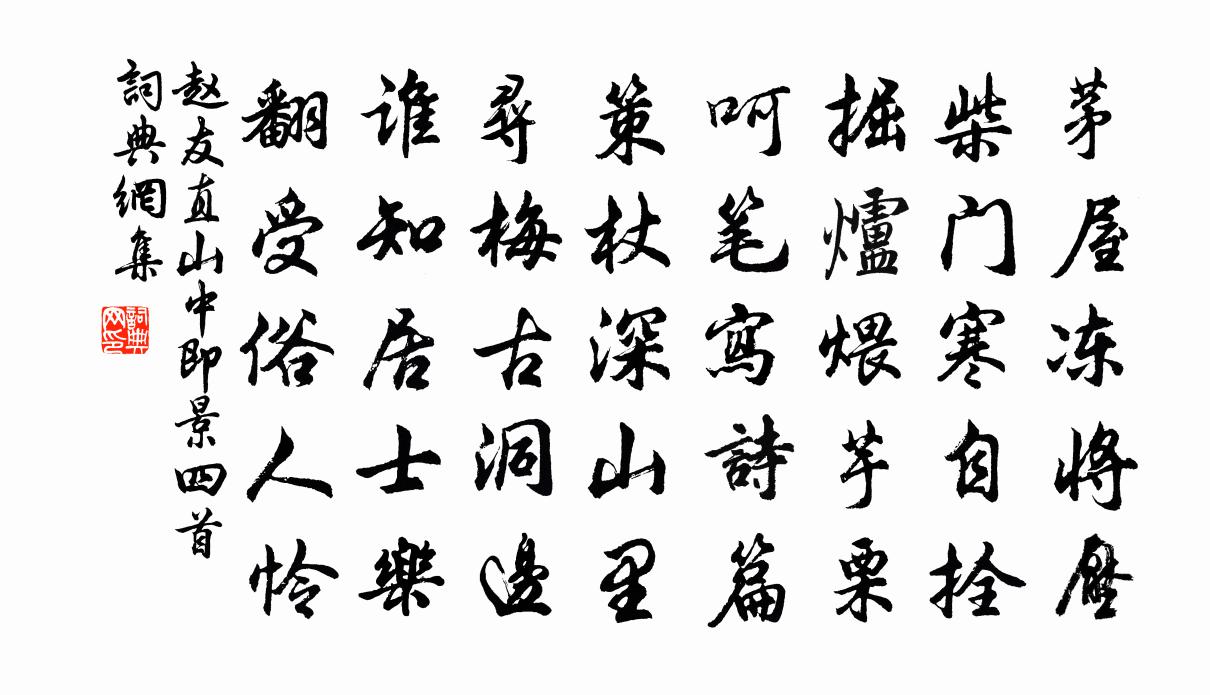 茅屋冻将壓
柴门寒自拴
掘爐煨芋栗
呵笔寫詩篇
策杖深山里
尋梅古洞邊
谁知居士樂
翻受俗人怜
赵友直山中即景四首
詞典網集
詞典网印